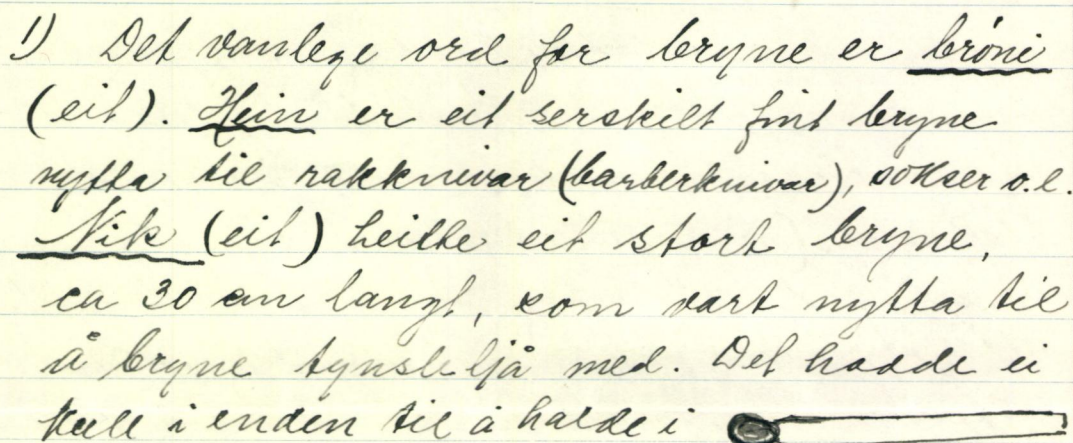 1) Det vanlege ord for bryne er bröni
(eit). Hein er eit serskilt fint bryne
nytta til rakknivar (barberknivar), sökser o.l.
Nik (eit) heitte eit stort bryne,
ca 30 cm langt, som vart nytta til
å bryne tynsleljå med. Det hadde ei
kull i enden til å halde i